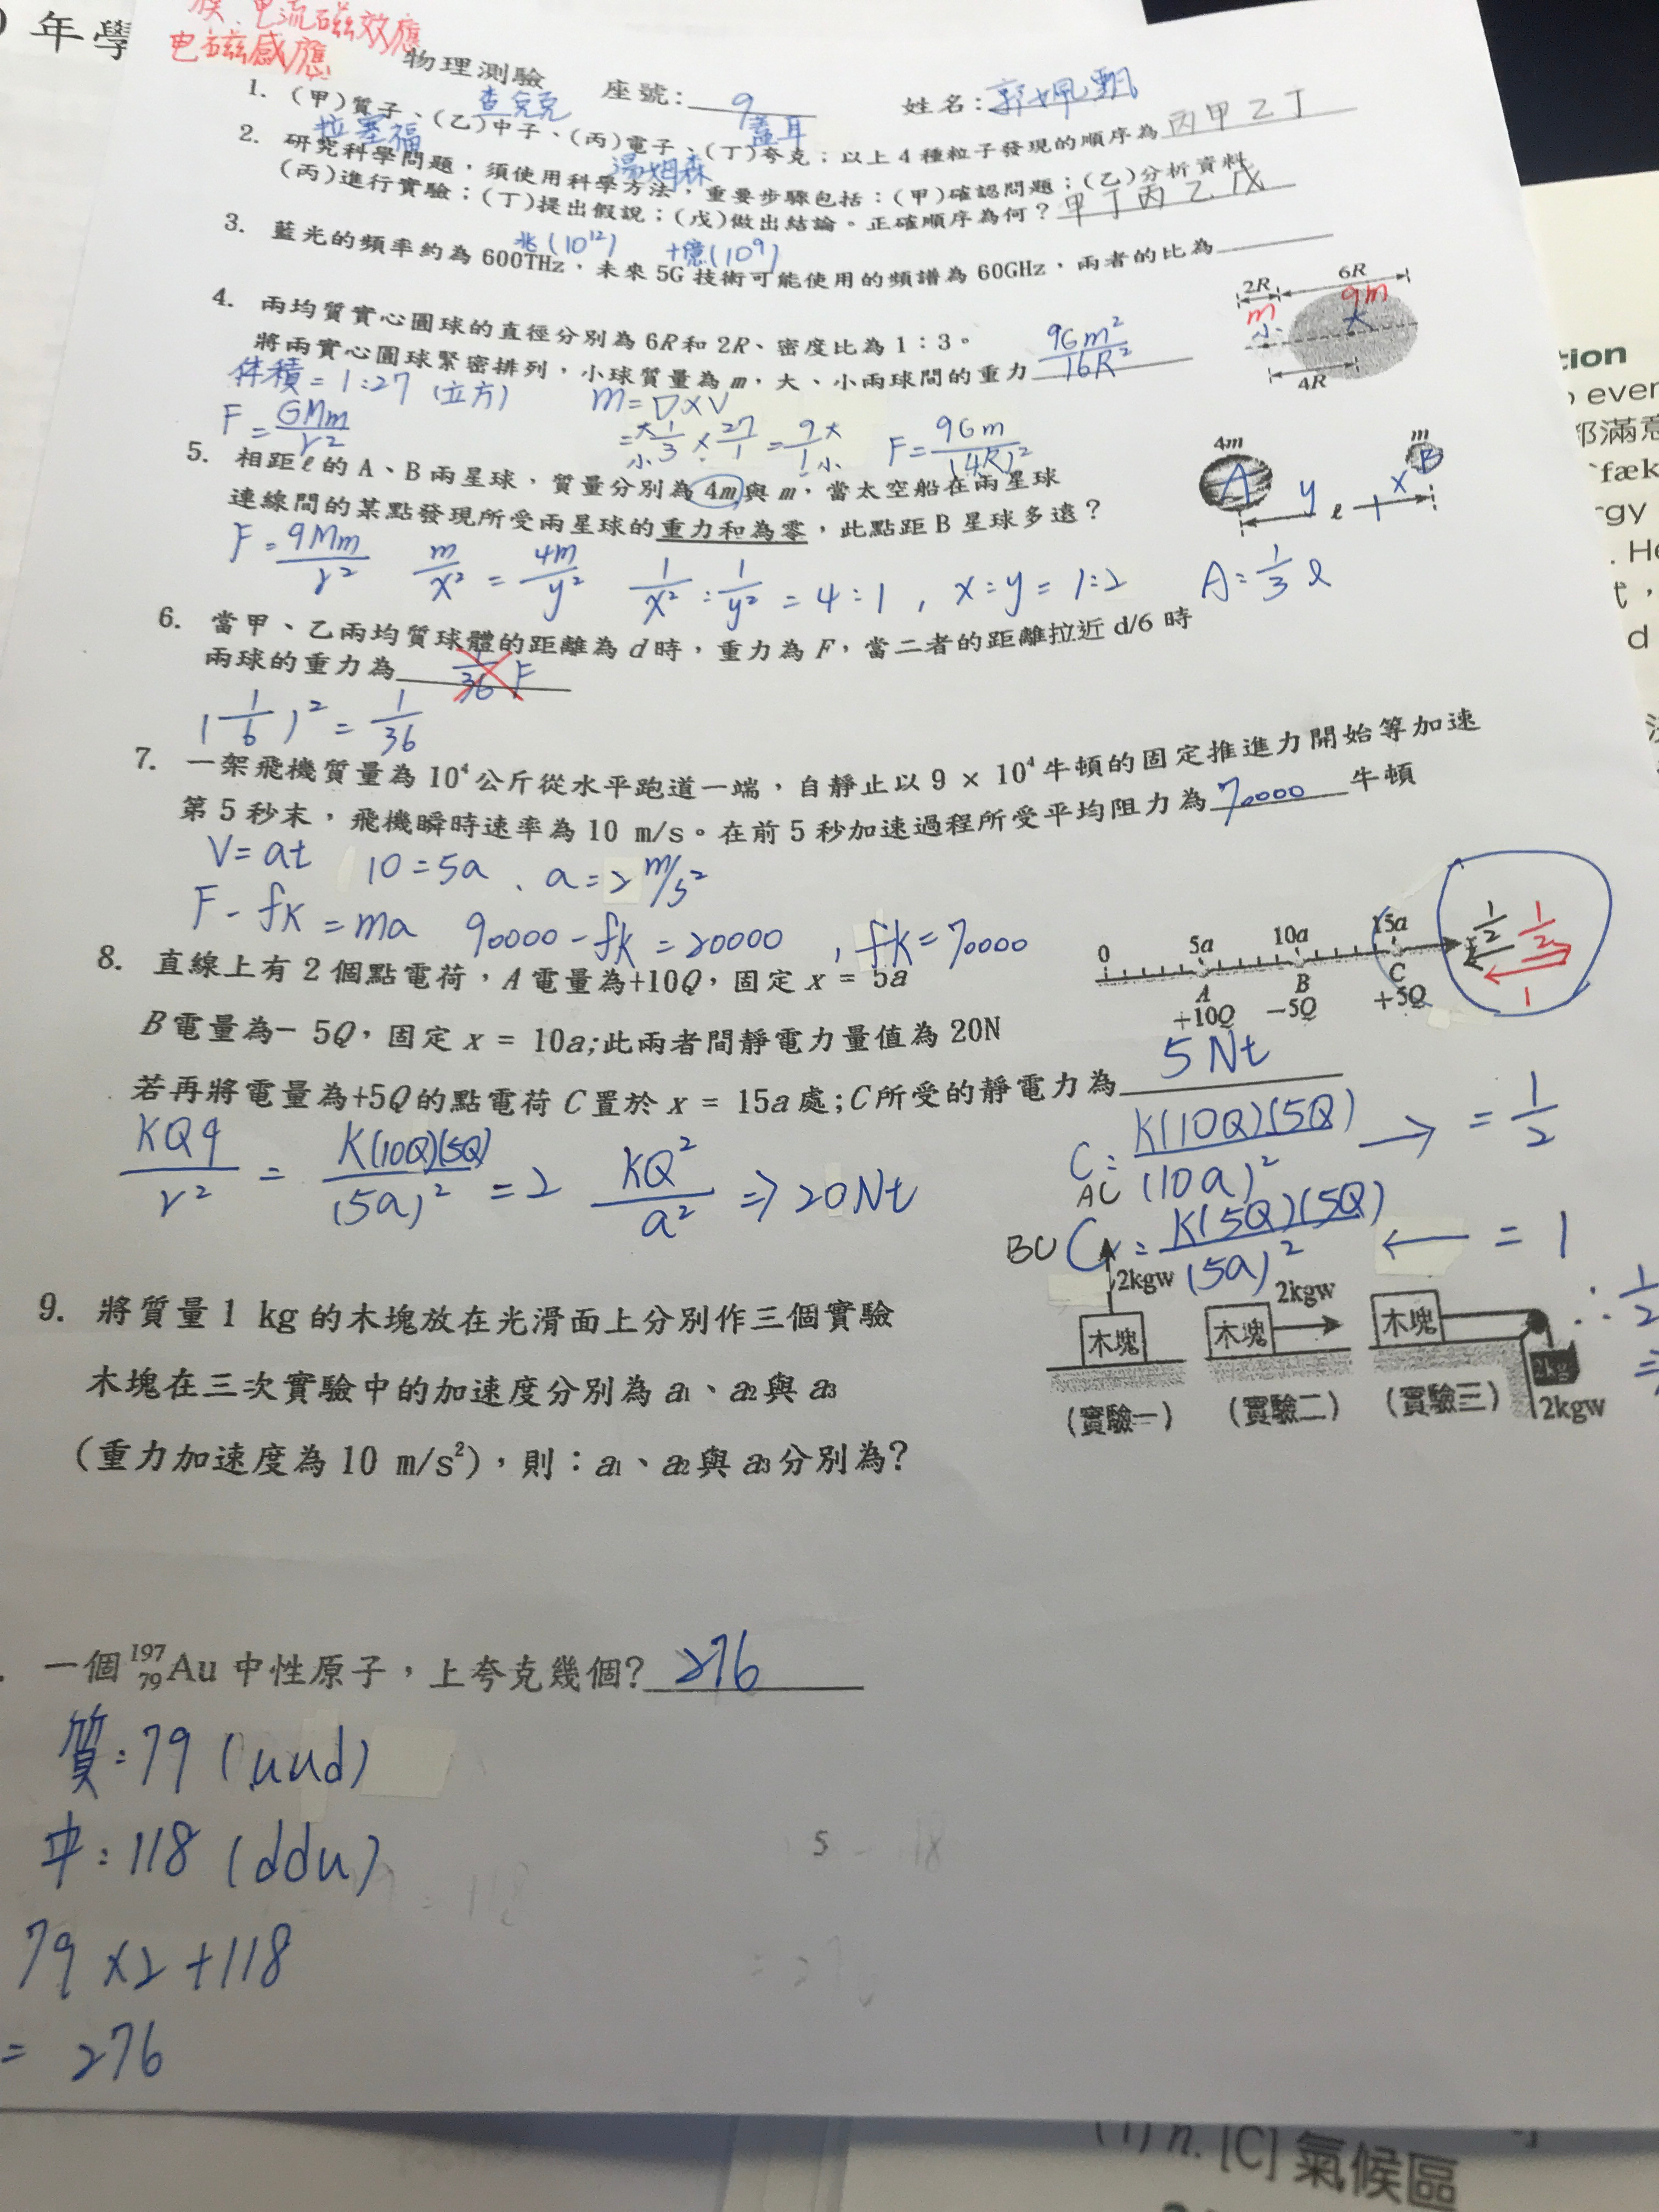 年學
族、電流磁效應
电磁感應
物理測驗 座號: 9 姓名:
查兌克
1. (甲)質子、(乙)中子、(丙)電子、(丁)夸克；以上4種粒子發現的順序為 丙甲乙丁
拉塞福 湯姆森 蓋耳
2. 研究科學問題，須使用科學方法，重要步驟包括：(甲)確認問題；(乙)分析資料
(丙)進行實驗；(丁)提出假說；(戊)做出結論。正確順序為何？甲丁丙乙戊
兆(10¹²) 十億(10⁹)
3. 藍光的頻率約為600THz，未來5G技術可能使用的頻譜為60GHz，兩者的比為
4. 兩均質實心圓球的直徑分別為6R和2R、密度比為1：3。
將兩實心圓球緊密排列，小球質量為m，大、小兩球間的重力 9Gm²/16R²
2R 6R
m 9m
小 大
4R
体積=1:27 (立方) m=D×V
F=GMm/r² =大/小 1/3 × 27/1 = 9/1 大/小 F=9Gm/(4R)²
5. 相距ℓ的A、B兩星球，質量分別為4m與m，當太空船在兩星球
連線間的某點發現所受兩星球的重力和為零，此點距B星球多遠？
4m m
A B
y ℓ x
F=9Mm/r² m/x²=4m/y² 1/x²:1/y²=4:1，x:y=1:2 A=1/3 ℓ
6. 當甲、乙兩均質球體的距離為d時，重力為F，當二者的距離拉近d/6時
兩球的重力為 1/36 F
(1/6)²=1/36
7. 一架飛機質量為10⁴公斤從水平跑道一端，自靜止以9 × 10⁴牛頓的固定推進力開始等加速
第5秒末，飛機瞬時速率為10 m/s。在前5秒加速過程所受平均阻力為 70000 牛頓
V=at 10=5a、a=2 m/s²
F-fk=ma 90000-fk=20000，fk=70000
8. 直線上有2個點電荷，A電量為+10Q，固定x = 5a
0 5a 10a 15a
A B C
+10Q -5Q +5Q
1/2 1/2
1
B電量為- 5Q，固定x = 10a;此兩者間靜電力量值為20N
若再將電量為+5Q的點電荷C置於x = 15a處;C所受的靜電力為 5 Nt
KQq/r² = K(10Q)(5Q)/(5a)² = 2 KQ²/a² ⇒ 20Nt
C: AC K(10Q)(5Q)/(10a)² → = 1/2
BC C: K(5Q)(5Q)/(5a)² ← = 1
∴ 1/2
9. 將質量1 kg的木塊放在光滑面上分別作三個實驗
木塊在三次實驗中的加速度分別為a₁、a₂與a₃
(重力加速度為10 m/s²)，則：a₁、a₂與a₃分別為?
2kgw 2kgw
木塊 木塊 木塊
2kg
2kgw
(實驗一) (實驗二) (實驗三)
一個¹⁹⁷₇₉Au中性原子，上夸克幾個? 276
質:79 (uud)
中:118 (ddu)
79×2+118
= 276
5
tion
even
都滿意
ˋfæk
rgy
. He
d
(1) n. [C] 氣候區